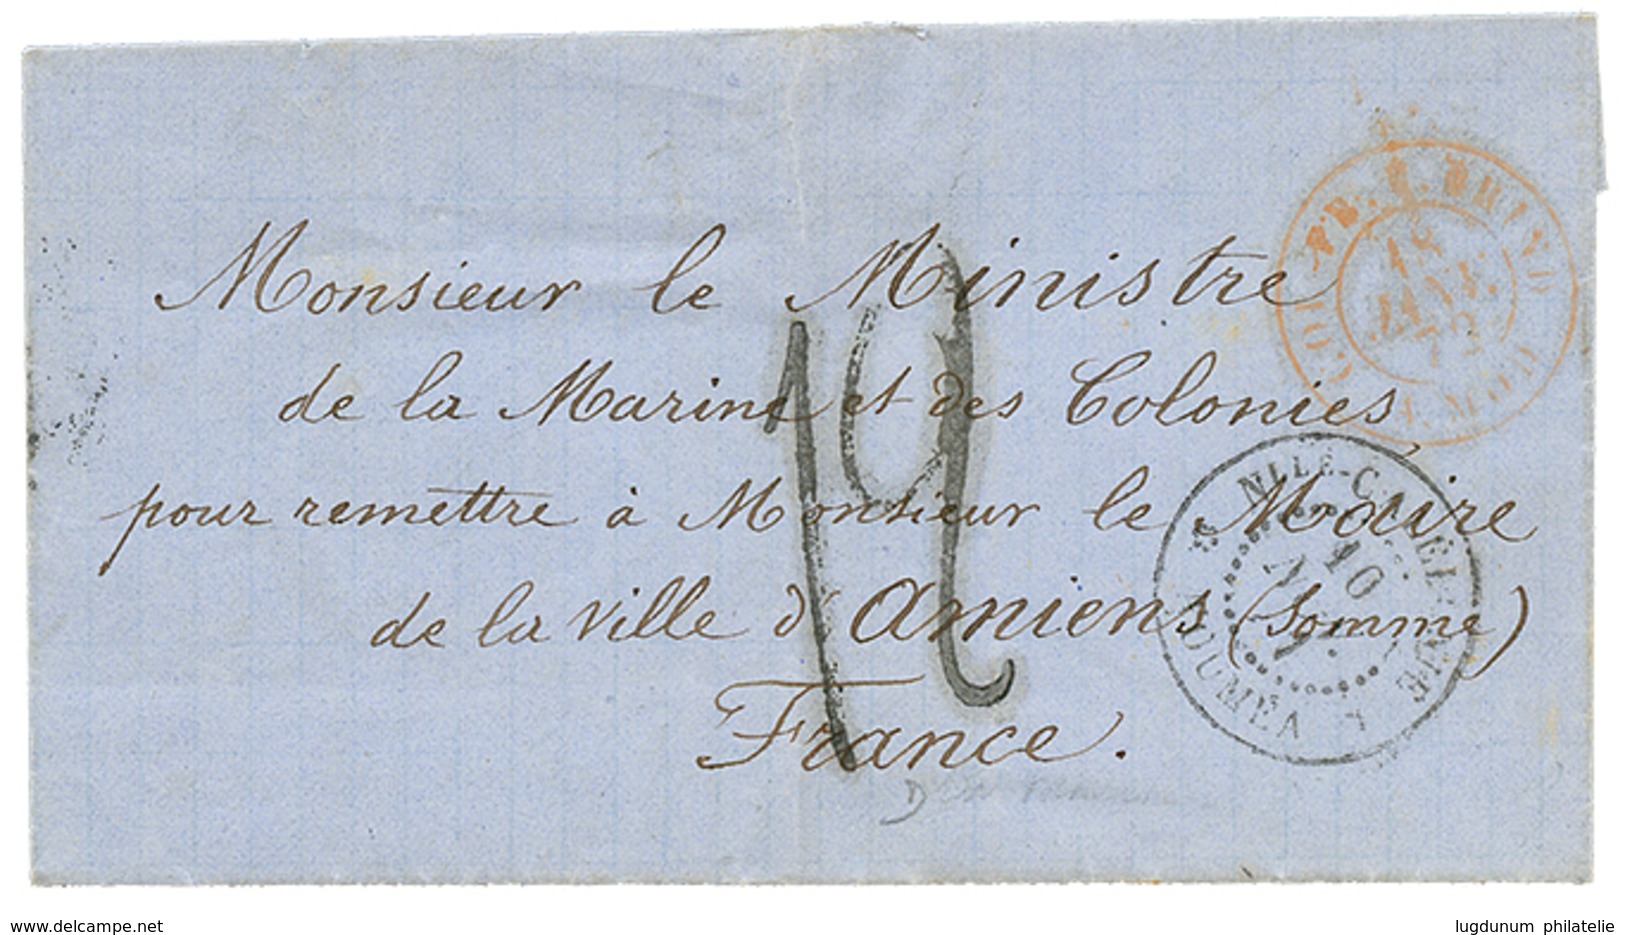 Monsieur le Ministre
de la Marine et des Colonies
pour remettre à Monsieur le Maire
de la ville d'Amiens (Somme)
France.
12
COL. FR. V. BRIND
18
JANV.
72
NLLE-CALEDONIE
10
NOUMEA
delcampe.net
lugdunum philatelie